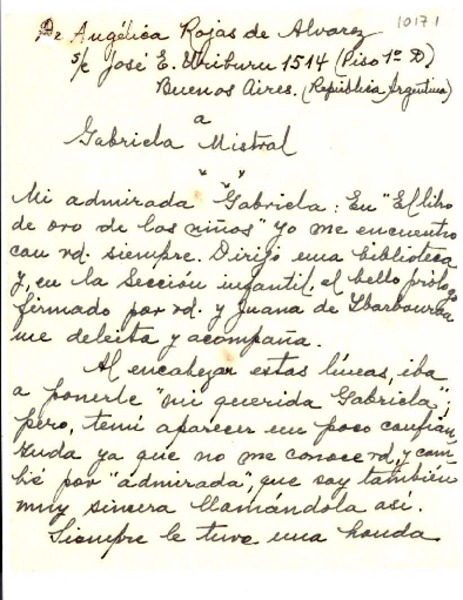 10171
De Angélica Rojas de Alvarez
s/c José E. Uriburu 1514 (Piso 1º D.)
Buenos Aires. (República Argentina)
a
Gabriela Mistral
Mi admirada Gabriela: En "El libro
de oro de los niños" yo me encuentro
con vd. siempre. Dirijo una biblioteca
y, en la Sección infantil, el bello prólogo
firmado por vd. y Juana de Ibarbourou
me deleita y acompaña.
Al encabezar estas líneas, iba
a ponerle "mi querida Gabriela";
pero, temí aparecer un poco confian
zuda ya que no me conoce vd, y cam-
bié por "admirada", que soy también
muy sincera llamándola así.
Siempre le tuve una honda